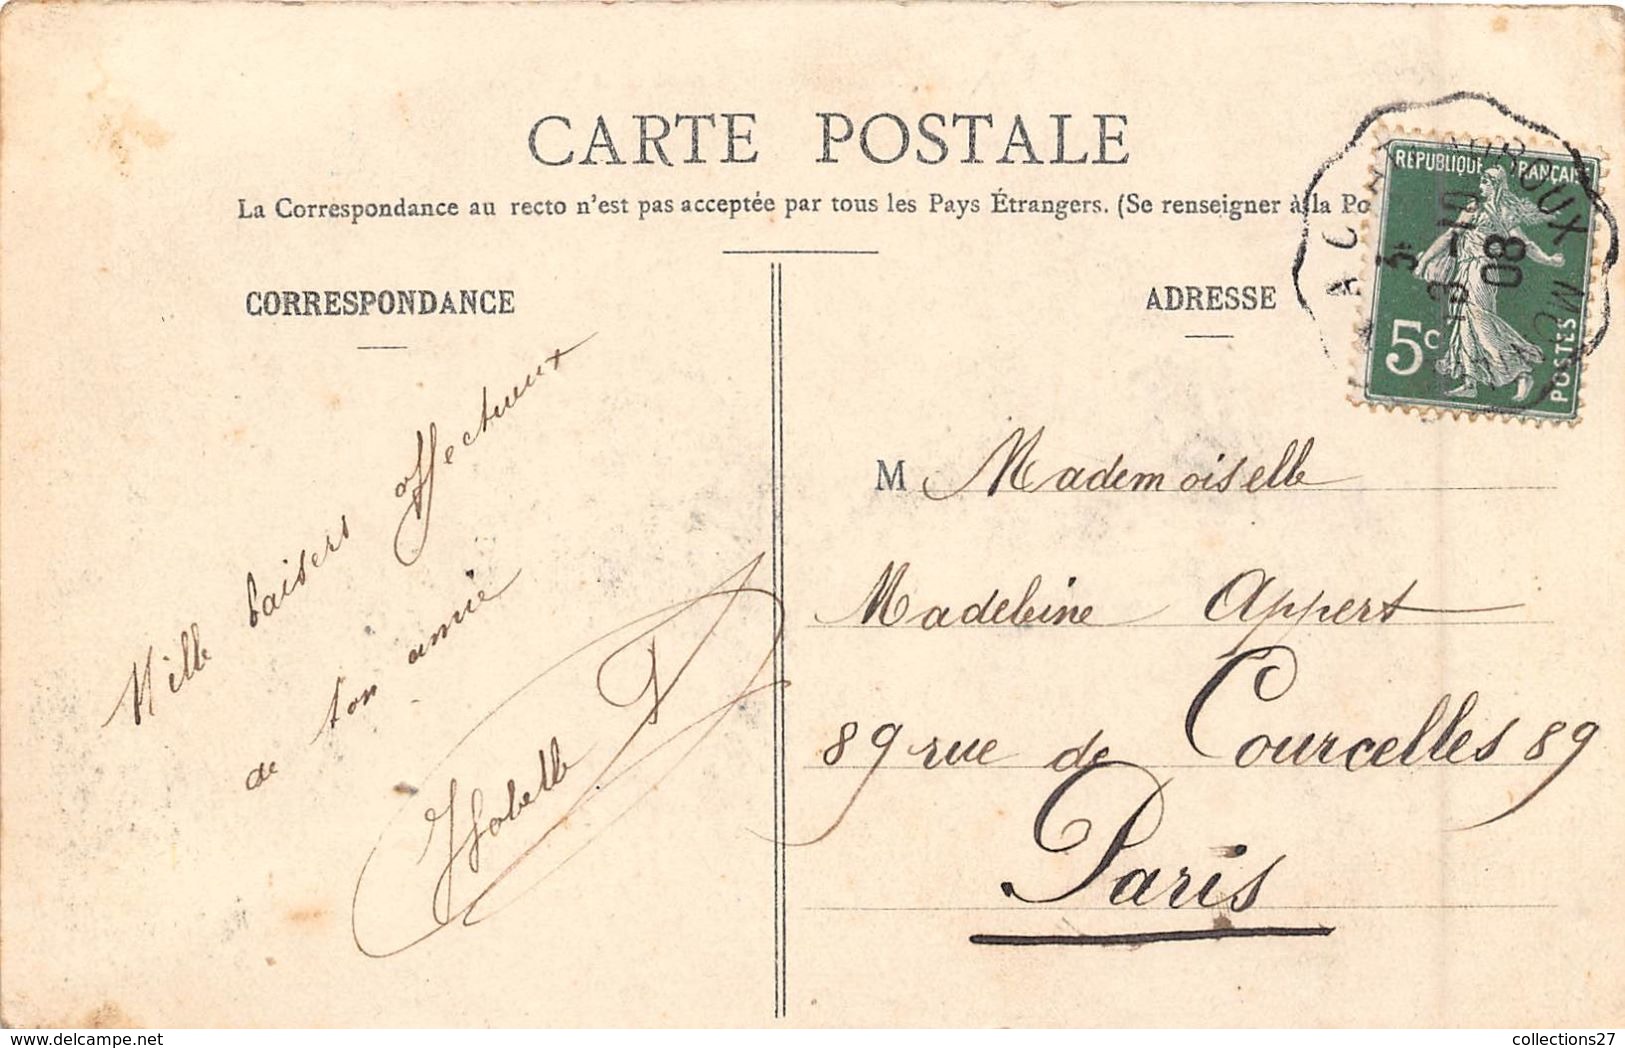 CARTE POSTALE
La Correspondance au recto n'est pas acceptée par tous les Pays Étrangers. (Se renseigner à la Po
CORRESPONDANCE
ADRESSE
RÉPUBLIQUE FRANÇAISE
5c
POSTES
3-10
08
Mille baisers affectueux
de ton amie
Isabelle
M Mademoiselle
Madeleine Appert
89 rue de Courcelles 89
Paris
delcampe.net
collections27